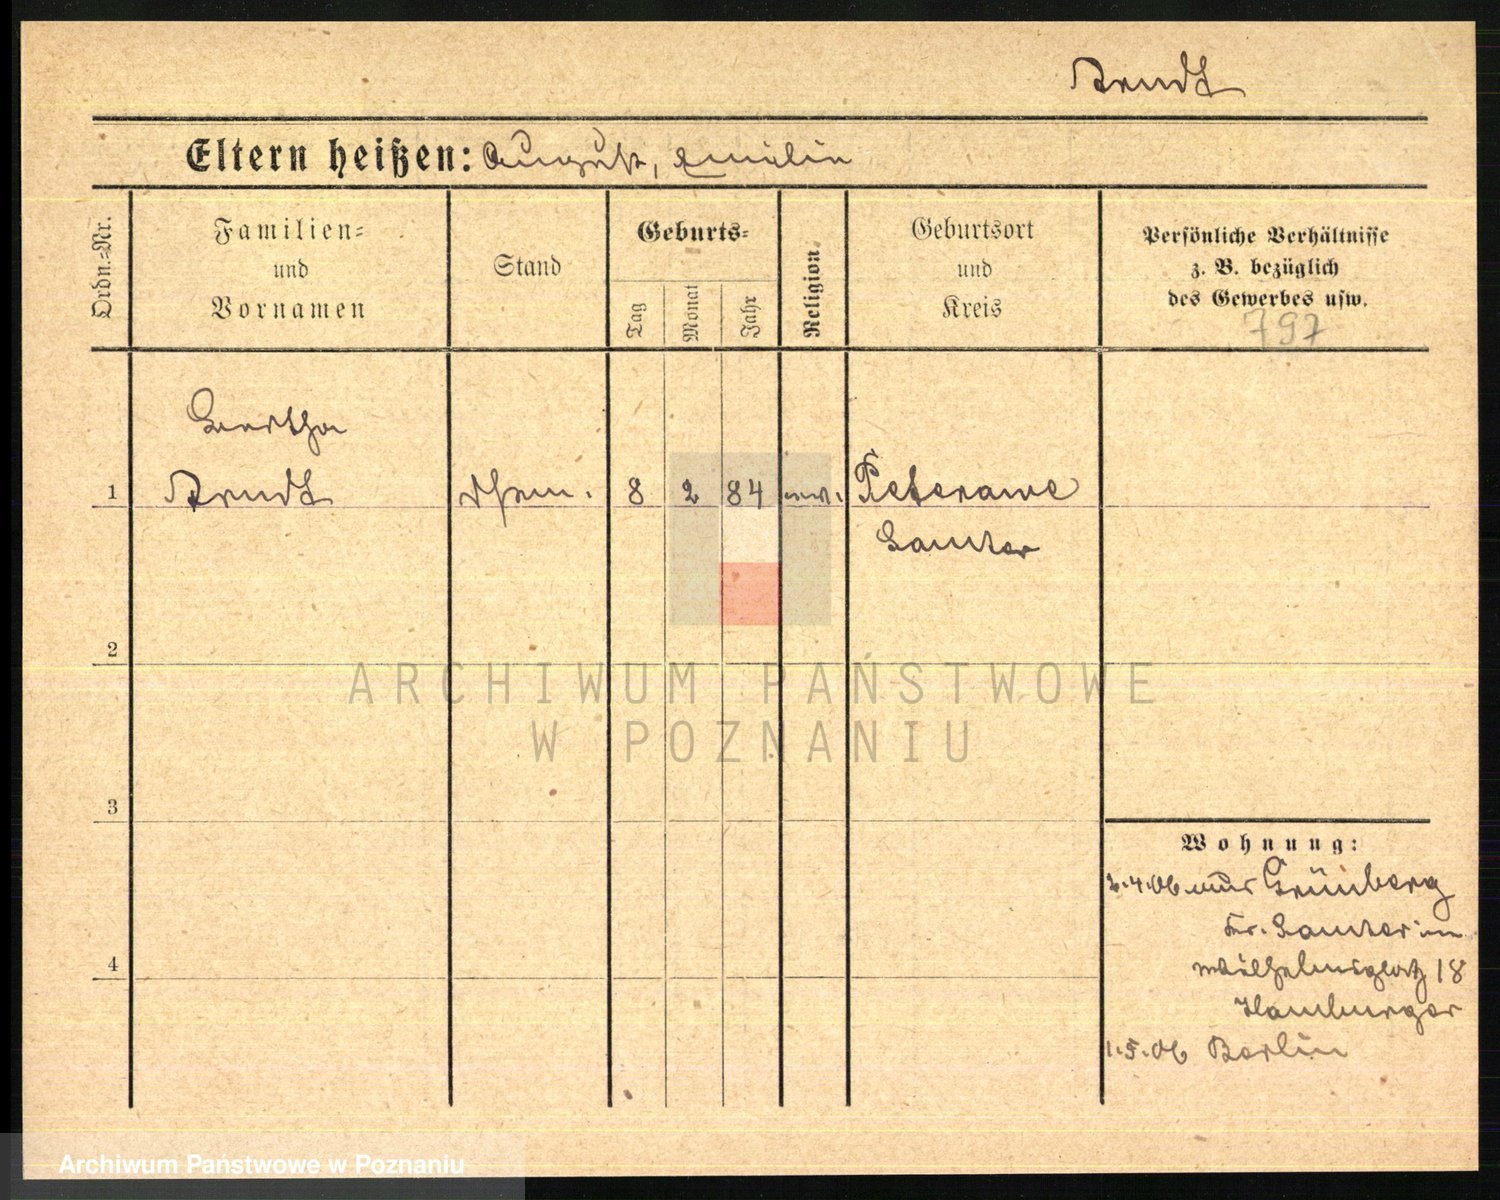 Arndt
Eltern heißen: August, Emilie
Ordn.-Nr.
Familien-
und
Vornamen
Stand
Geburts-
Tag
Monat
Jahr
Religion
Geburtsort
und
Kreis
Persönliche Verhältnisse
z. B. bezüglich
des Gewerbes usw.
797
Bertha
1 Arndt 8 2 84 ev. Peterawe
Samter
2
ARCHIWUM PAŃSTWOWE
W POZNANIU
3
Wohnung:
2.4.06 aus Grünberg
Kr. Samter in
Wilhelmsplatz 18
Hamburger
1.5.06 Berlin
4
Archiwum Państwowe w Poznaniu